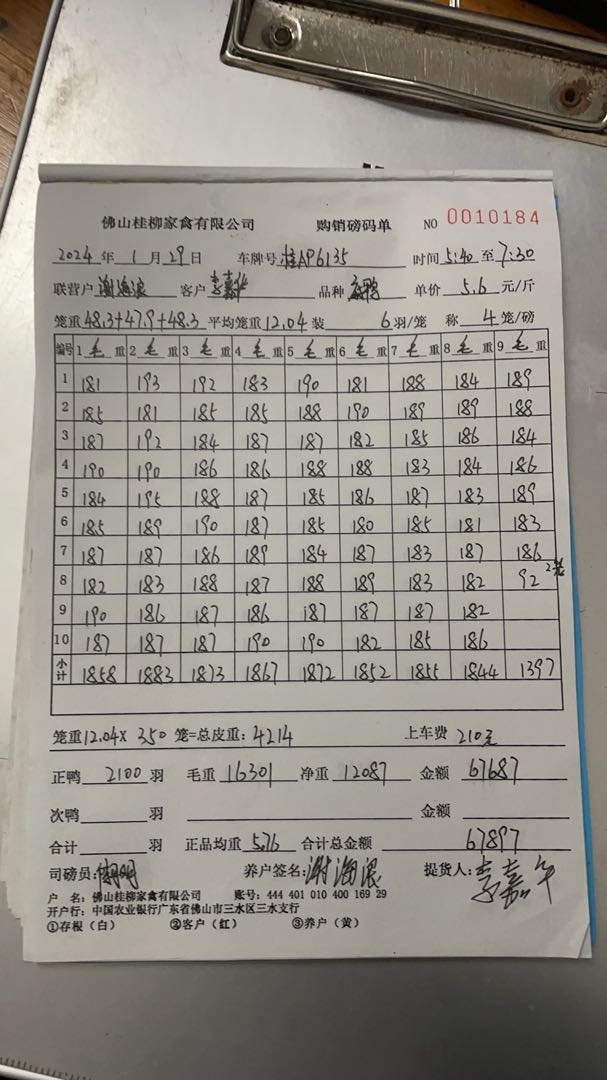 佛山桂柳家禽有限公司 购销磅码单 NO 0010184
2024 年 1 月 29 日 车牌号 桂AP6135 时间 5:40 至 7:30
联营户 谢海浪 客户 李嘉华 品种 单价 5.6 元/斤
笼重 48.3+47.9+48.3 平均笼重 12.04 装 6 羽/笼 称 4 笼/磅
编号 1 毛 重 2 毛 重 3 毛 重 4 毛 重 5 毛 重 6 毛 重 7 毛 重 8 毛 重 9 毛 重
1 181 193 192 183 190 181 188 184 189
2 185 181 185 185 188 190 189 189 188
3 187 192 184 187 187 182 185 186 184
4 190 190 186 186 188 188 183 184 186
5 184 195 188 187 185 186 187 183 189
6 185 189 190 187 185 180 185 181 183
7 187 187 186 189 184 187 183 187 186
8 182 183 188 187 188 189 183 182 92 2笼
9 190 186 187 186 187 187 187 182
10 187 187 187 190 190 182 185 186
小计 1858 1883 1873 1867 1872 1852 1855 1844 1397
笼重 12.04 × 350 笼=总皮重: 4214 上车费 210元
正鸭 2100 羽 毛重 16301 净重 12087 金额 67687
次鸭 羽 金额
合计 羽 正品均重 5.76 合计总金额 67897
司磅员: 养户签名: 谢海浪 提货人: 李嘉华
户 名: 佛山桂柳家禽有限公司 账号: 444 401 010 400 169 29
开户行: 中国农业银行广东省佛山市三水区三水支行
①存根（白） ②客户（红） ③养户（黄）